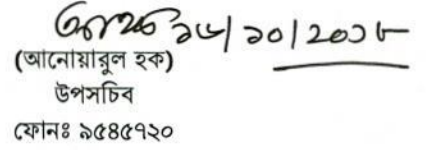 ১৬/১০/২০১৮
(আনোয়ারুল হক)
উপসচিব
ফোনঃ ৯৫৪৫৭২০